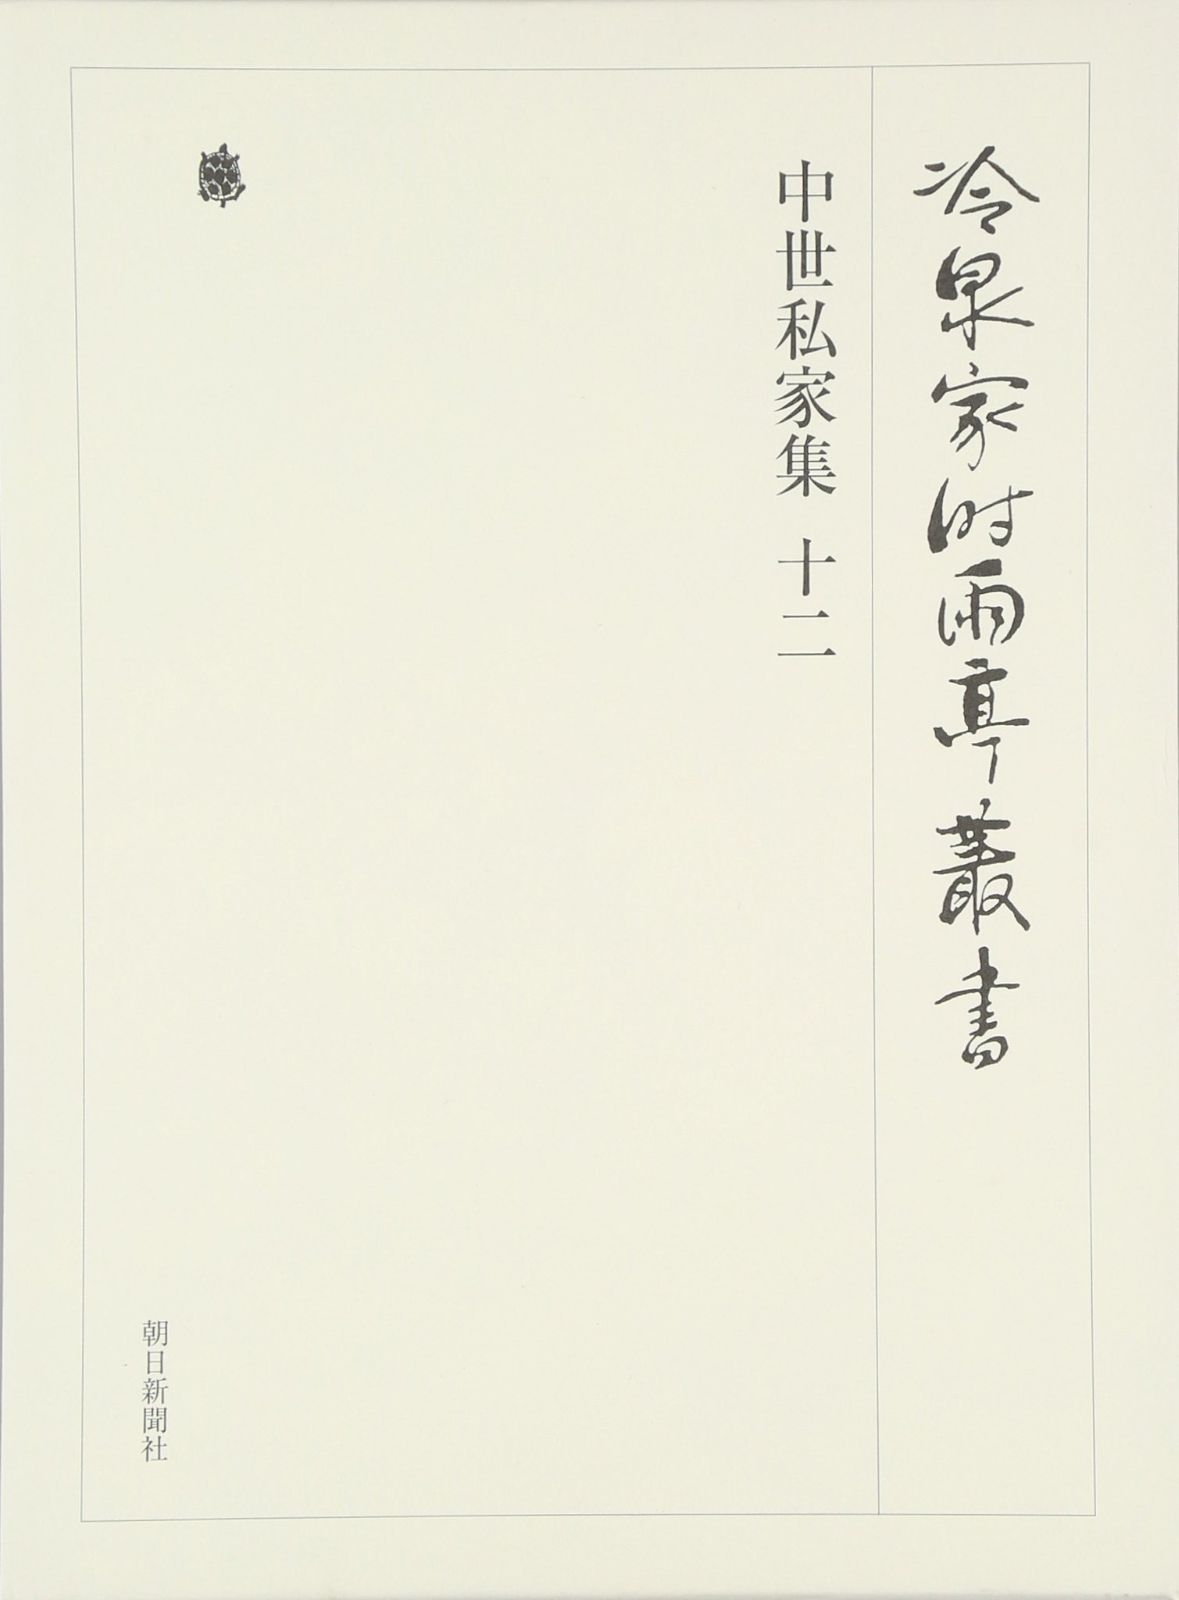 冷泉家時雨亭叢書
中世私家集 十二
朝日新聞社